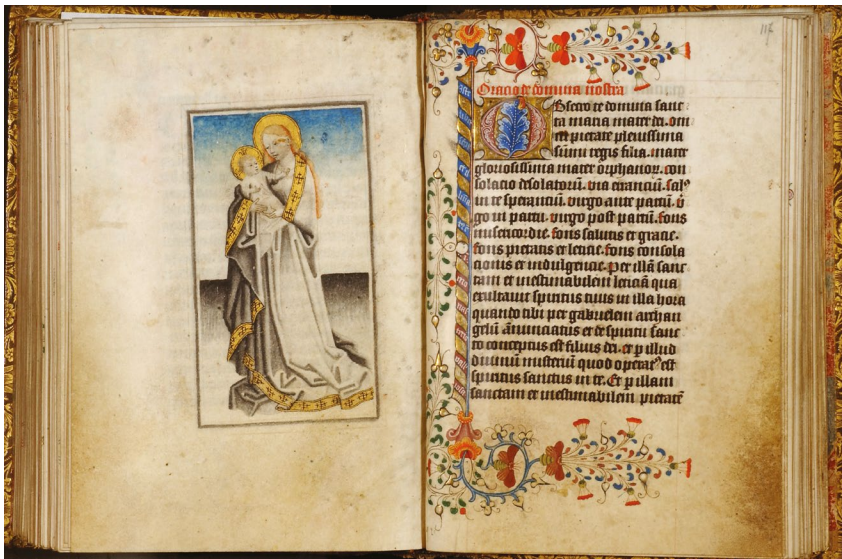 117
Oracio de domina nostra
Obsecro te domina sanc
ta maria mater dei. om
pietate plenissima
sũmi regis filia. mater
gloriosissima mater orphanoꝝ. con
solacio desolatoꝝ. via erranciũ. salꝰ
in te speranciũ. virgo ante partũ. v̾
go in partu. virgo post partũ. fons
misericordie. fons salutis et gracie.
fons pietatis et leticie. fons consola
cionis et indulgencie. Per illã sanc
tam et inestimabilem leticiã qua
exultauit spiritus tuus in illa hora
quando tibi per gabrielem archan
gelũ ãnunciatus et de spiritu sanc
to conceptus est filius dei. et ꝑ illud
diuinũ misteriũ quod operatꝰ est
spiritus sanctus in te. Et ꝑ illam
sanctam et inestimabilem pietatẽ